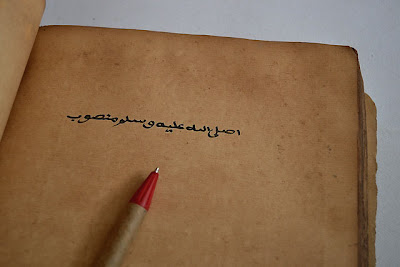 اصلي الله عليه وسلم منصوب